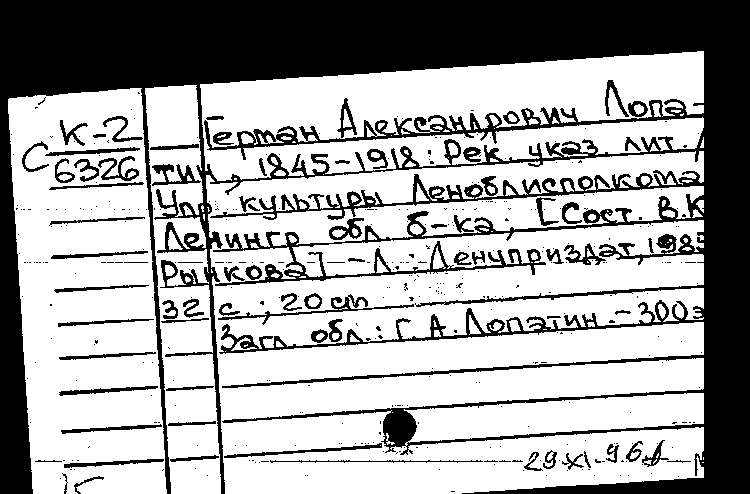 К-2
С 6326
Герман Александрович Лопа-
тин, 1845-1918: Рек. указ. лит. /
Упр. культуры Леноблисполкома
Ленингр. обл. б-ка; [Сост. В.К
Рынкова]. - Л.: Ленуприздат, 1985
32 с.; 20 cm
Загл. обл.: Г. А. Лопатин. - 300э
29.XI.96